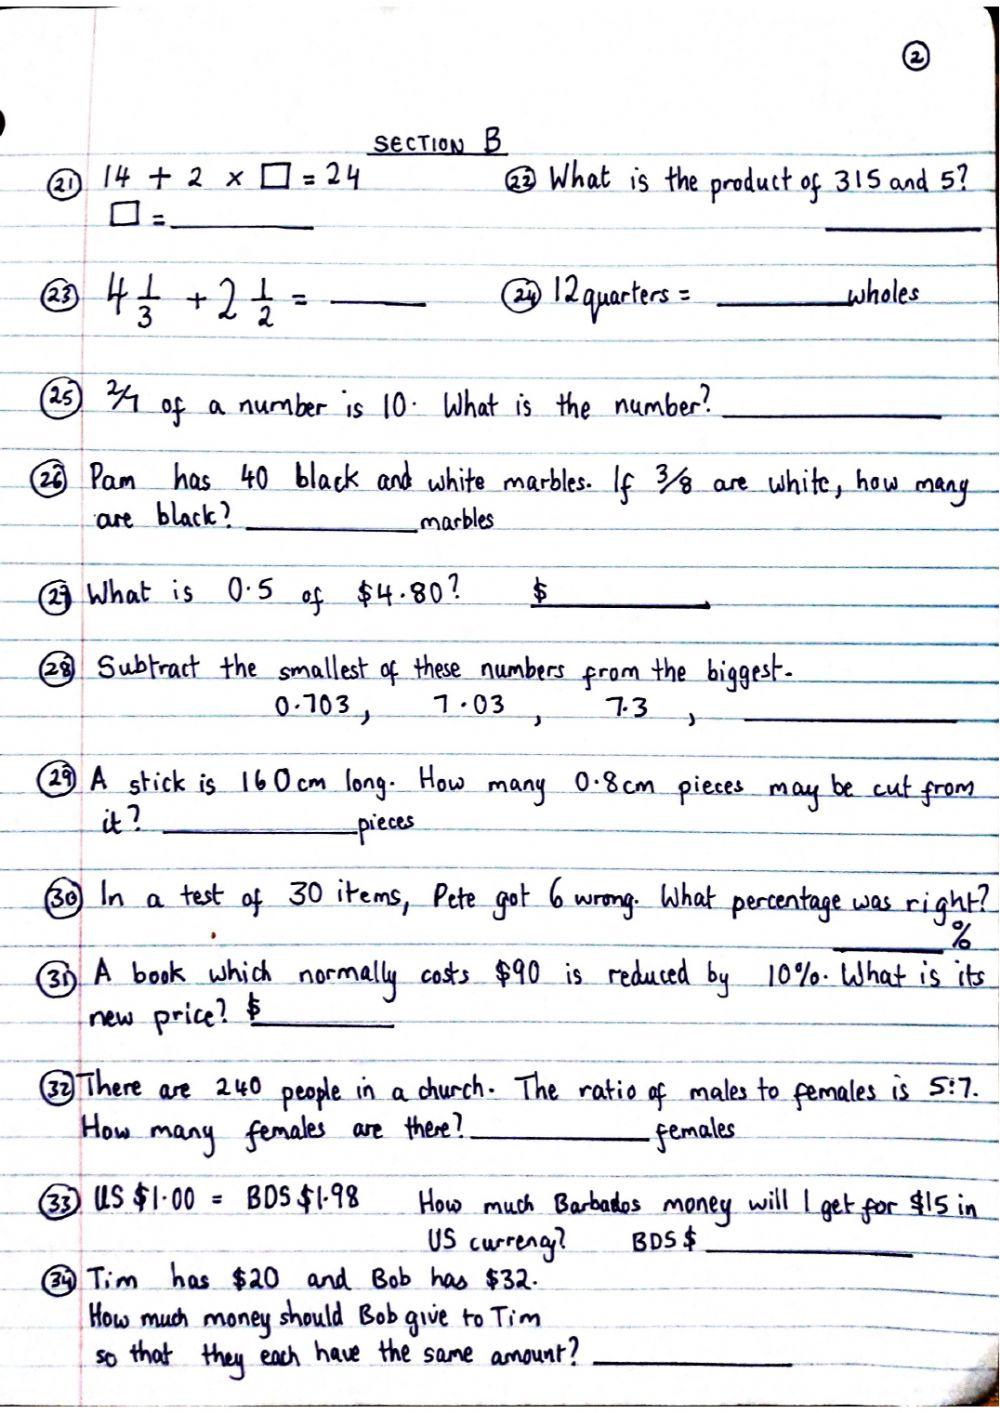 2
SECTION B
21 14 + 2 × □ = 24 22 What is the product of 315 and 5?
□ = ________ ________
23 4 1/3 + 2 1/2 = ________ 24 12 quarters = ________ wholes
25 2/7 of a number is 10. What is the number? ________
26 Pam has 40 black and white marbles. If 3/8 are white, how many
are black? ________ marbles
27 What is 0.5 of $4.80? $ ________
28 Subtract the smallest of these numbers from the biggest.
0.703, 7.03, 7.3, ________
29 A stick is 160cm long. How many 0.8cm pieces may be cut from
it? ________ pieces
30 In a test of 30 items, Pete got 6 wrong. What percentage was right?
________ %
31 A book which normally costs $90 is reduced by 10%. What is its
new price? $ ________
32 There are 240 people in a church. The ratio of males to females is 5:7.
How many females are there? ________ females
33 US $1.00 = BDS $1.98 How much Barbados money will I get for $15 in
US currency? BDS $ ________
34 Tim has $20 and Bob has $32.
How much money should Bob give to Tim
so that they each have the same amount? ________